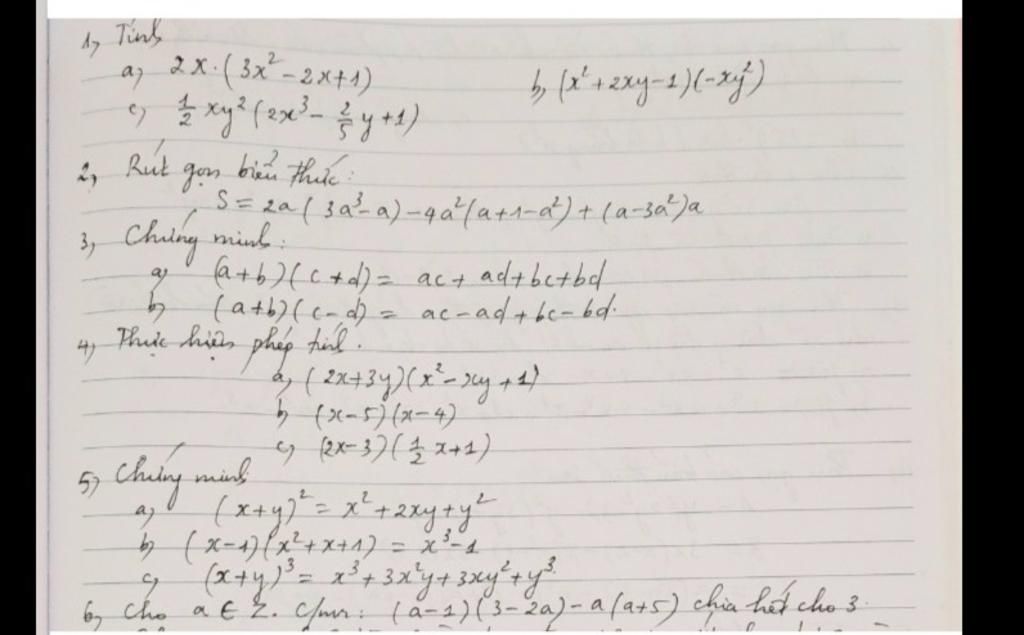 1, Tính
a, 2x.(3x² - 2x + 1) b, (x² + 2xy - 1)(-xy²)
c, 1/2 xy² (2x³ - 2/5 y + 1)
2, Rút gọn biểu thức:
S = 2a(3a³ - a) - 4a²(a + 1 - a²) + (a - 3a²)a
3, Chứng minh:
a, (a+b)(c+d) = ac + ad + bc + bd
b, (a+b)(c-d) = ac - ad + bc - bd.
4, Thực hiện phép tính.
a, (2x+3y)(x² - xy + 1)
b, (x-5)(x-4)
c, (2x-3)(1/2 x + 1)
5, Chứng minh
a, (x+y)² = x² + 2xy + y²
b, (x-1)(x² + x + 1) = x³ - 1
c, (x+y)³ = x³ + 3x²y + 3xy² + y³.
6, Cho a ∈ Z. C/mr: (a-1)(3-2a) - a(a+5) chia hết cho 3.